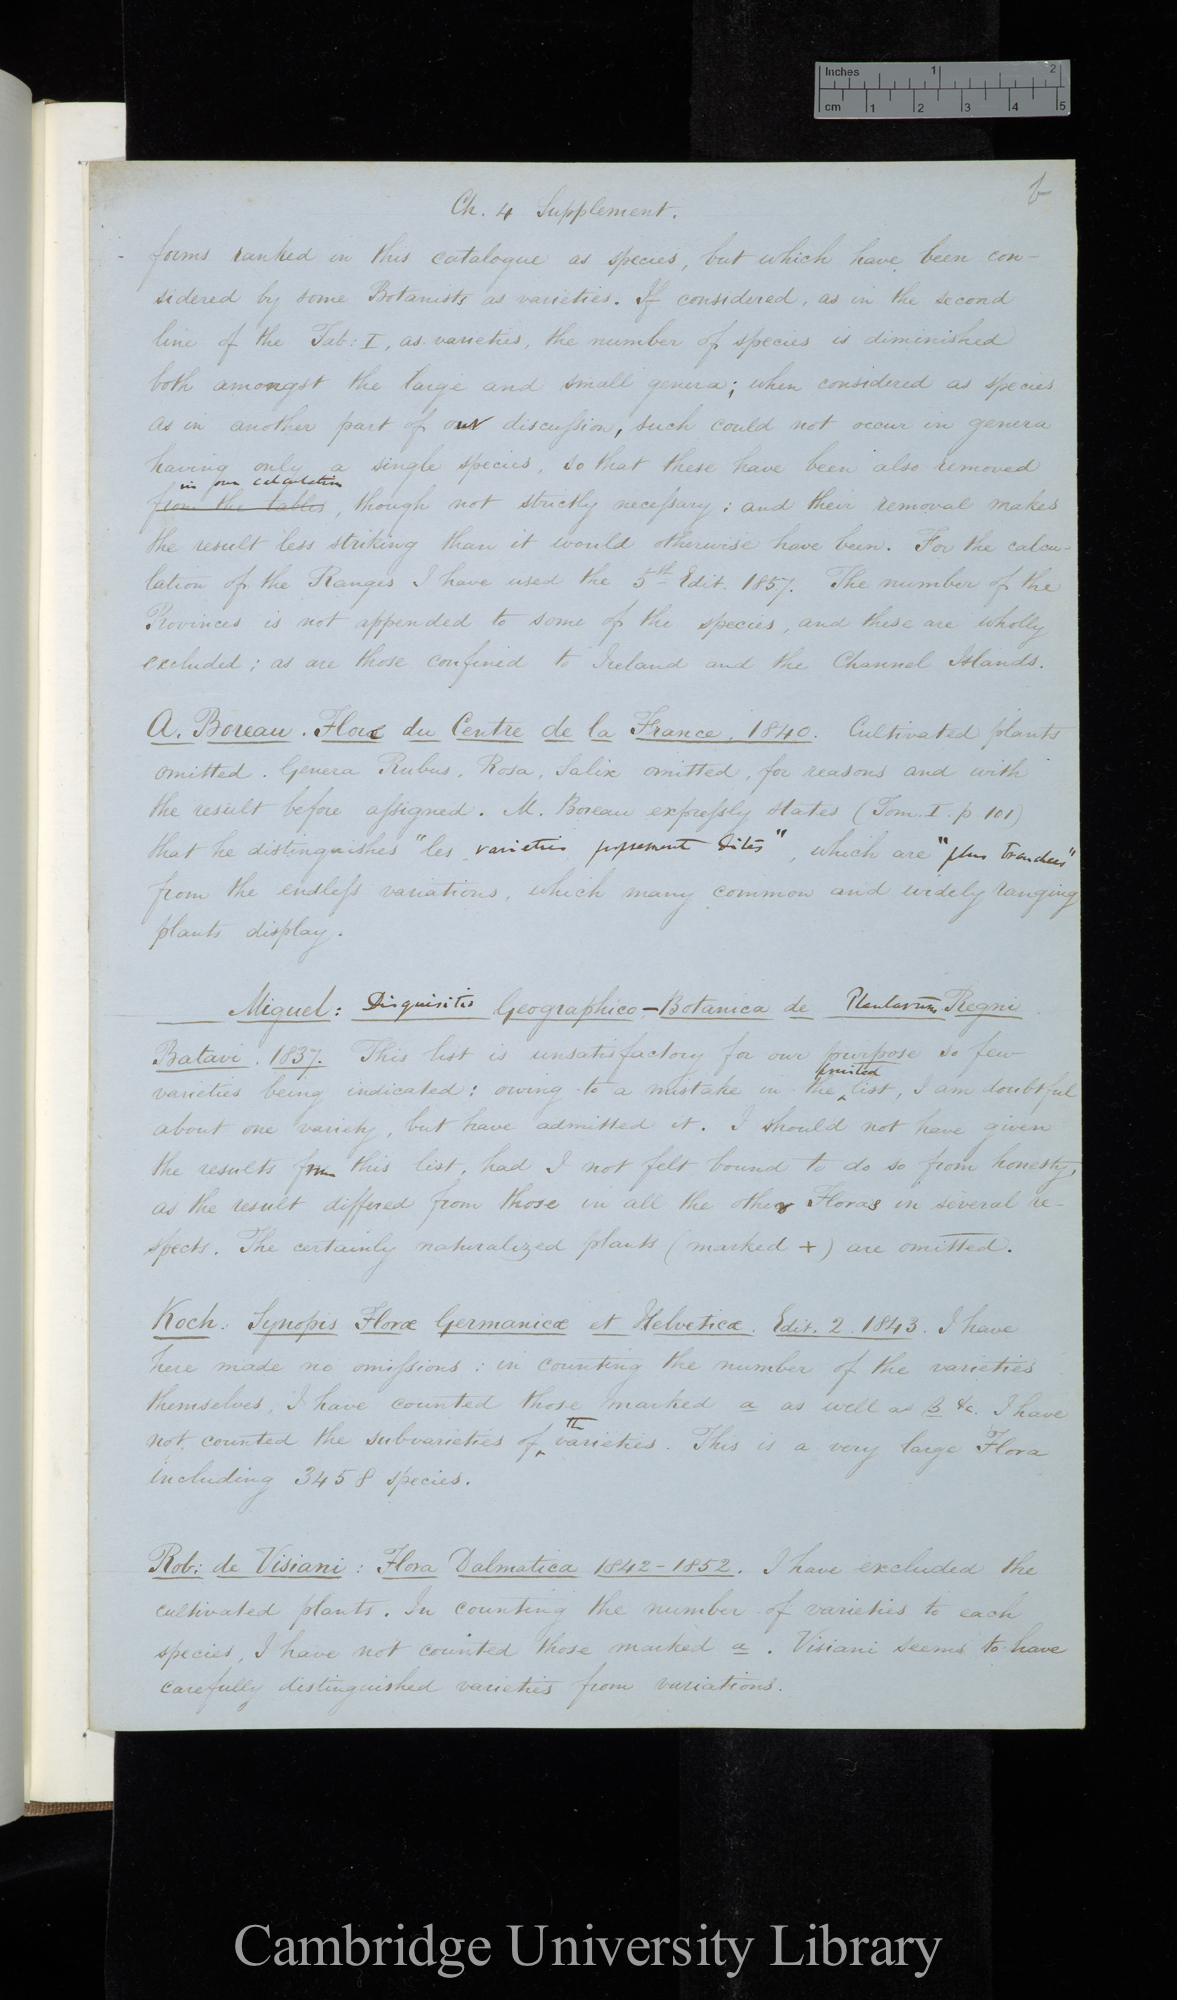 Inches 1 2
cm 1 2 3 4 5
b
Ch. 4 Supplement.
forms ranked in this catalogue as species, but which have been con-
sidered by some Botanists as varieties. If considered, as in the second
line of the Tab: I, as varieties, the number of species is diminished
both amongst the large and small genera; when considered as species
as in another part of our discussion, such could not occur in genera
having only a single species, so that these have been also removed
in our calculation
from the tables, though not strictly necessary; and their removal makes
the result less striking than it would otherwise have been. For the calcu-
lation of the Ranges I have used the 5th Edit. 1857. The number of the
Provinces is not appended to some of the species, and these are wholly
excluded; as are those confined to Ireland and the Channel Islands.
A. Boreau. Flore du Centre de la France, 1840. Cultivated plants
omitted. Genera Rubus, Rosa, Salix omitted, for reasons and with
the result before assigned. M. Boreau expressly states (Tom. I. p 101)
that he distinguishes "les varieties proprement dites", which are "plus tranchees"
from the endless variations, which many common and widely ranging
plants display.
Miquel: Disquisitio Geographico-Botanica de Plantarum Regni
Batavi. 1837. This list is unsatisfactory for our purpose so few
printed
varieties being indicated: owing to a mistake in the list, I am doubtful
about one variety, but have admitted it. I should not have given
the results from this list, had I not felt bound to do so from honesty,
as the result differed from those in all the other Floras in several re-
spects. The certainly naturalized plants (marked +) are omitted.
Koch: Synopis Floræ Germanicæ et Helveticæ. Edit. 2. 1843. I have
here made no omissions: in counting the number of the varieties
themselves, I have counted those marked a as well as B &c. I have
th
not counted the subvarieties of varieties. This is a very large Flora
including 3458 species.
Rob: de Visiani: Flora Dalmatica 1842-1852. I have excluded the
cultivated plants. In counting the number of varieties to each
species, I have not counted those marked a. Visiani seems to have
carefully distinguished varieties from variations.
Cambridge University Library